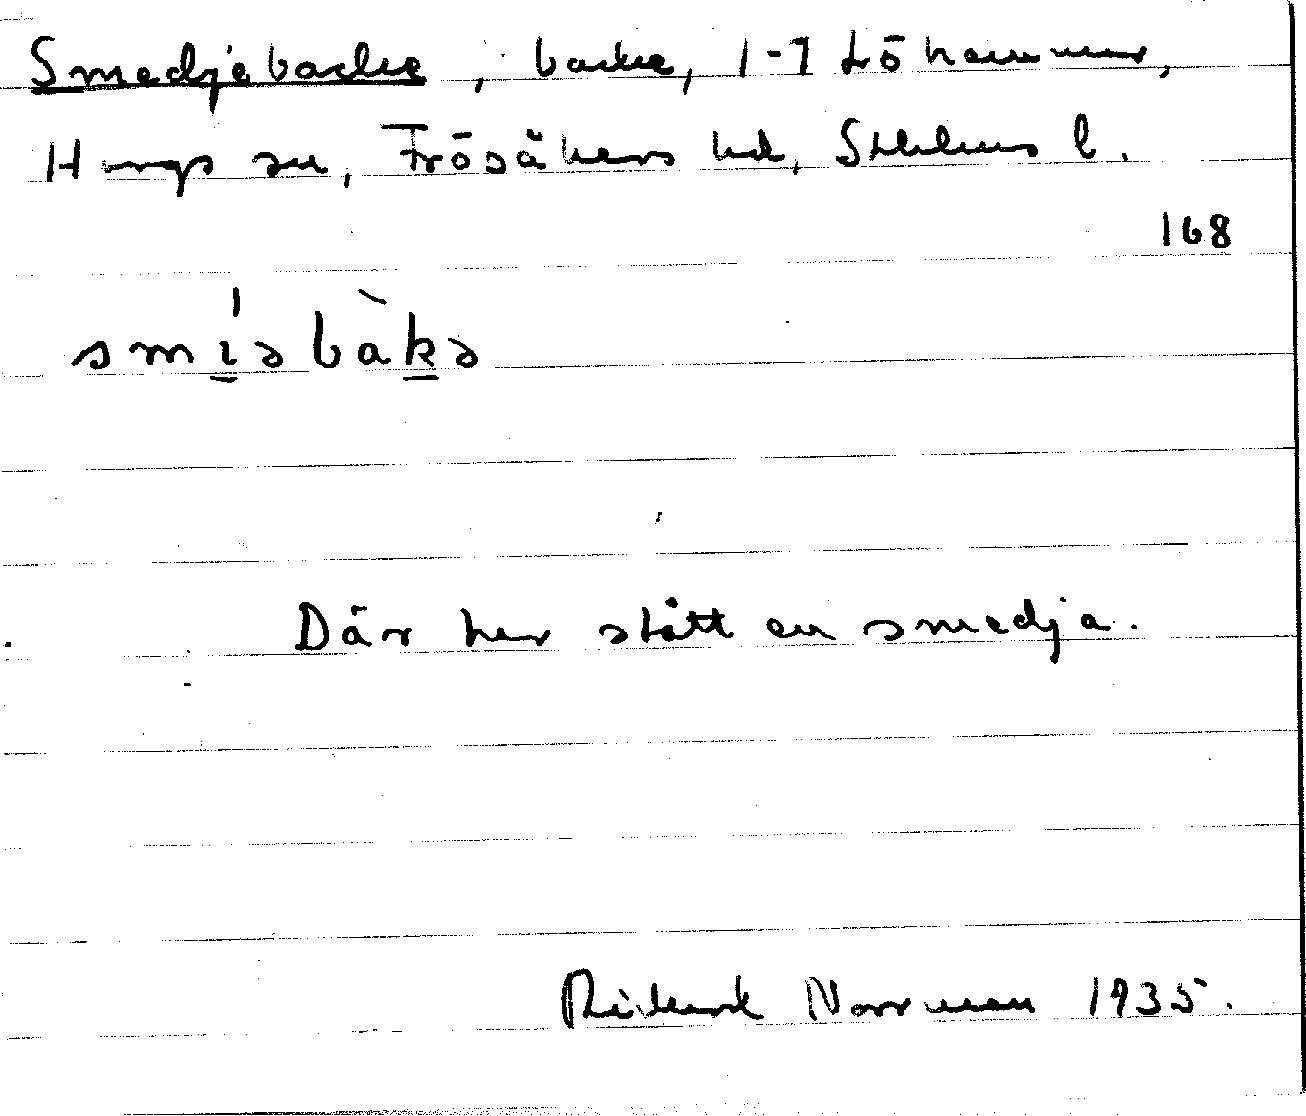 Smedjebacke, backe, 1-7 Löhammar,
Hargs sn, Frösåkers hd, Sthlms l.
168
smíəbàkə
Där har stått en smedja.
Rikard Norrman 1935.